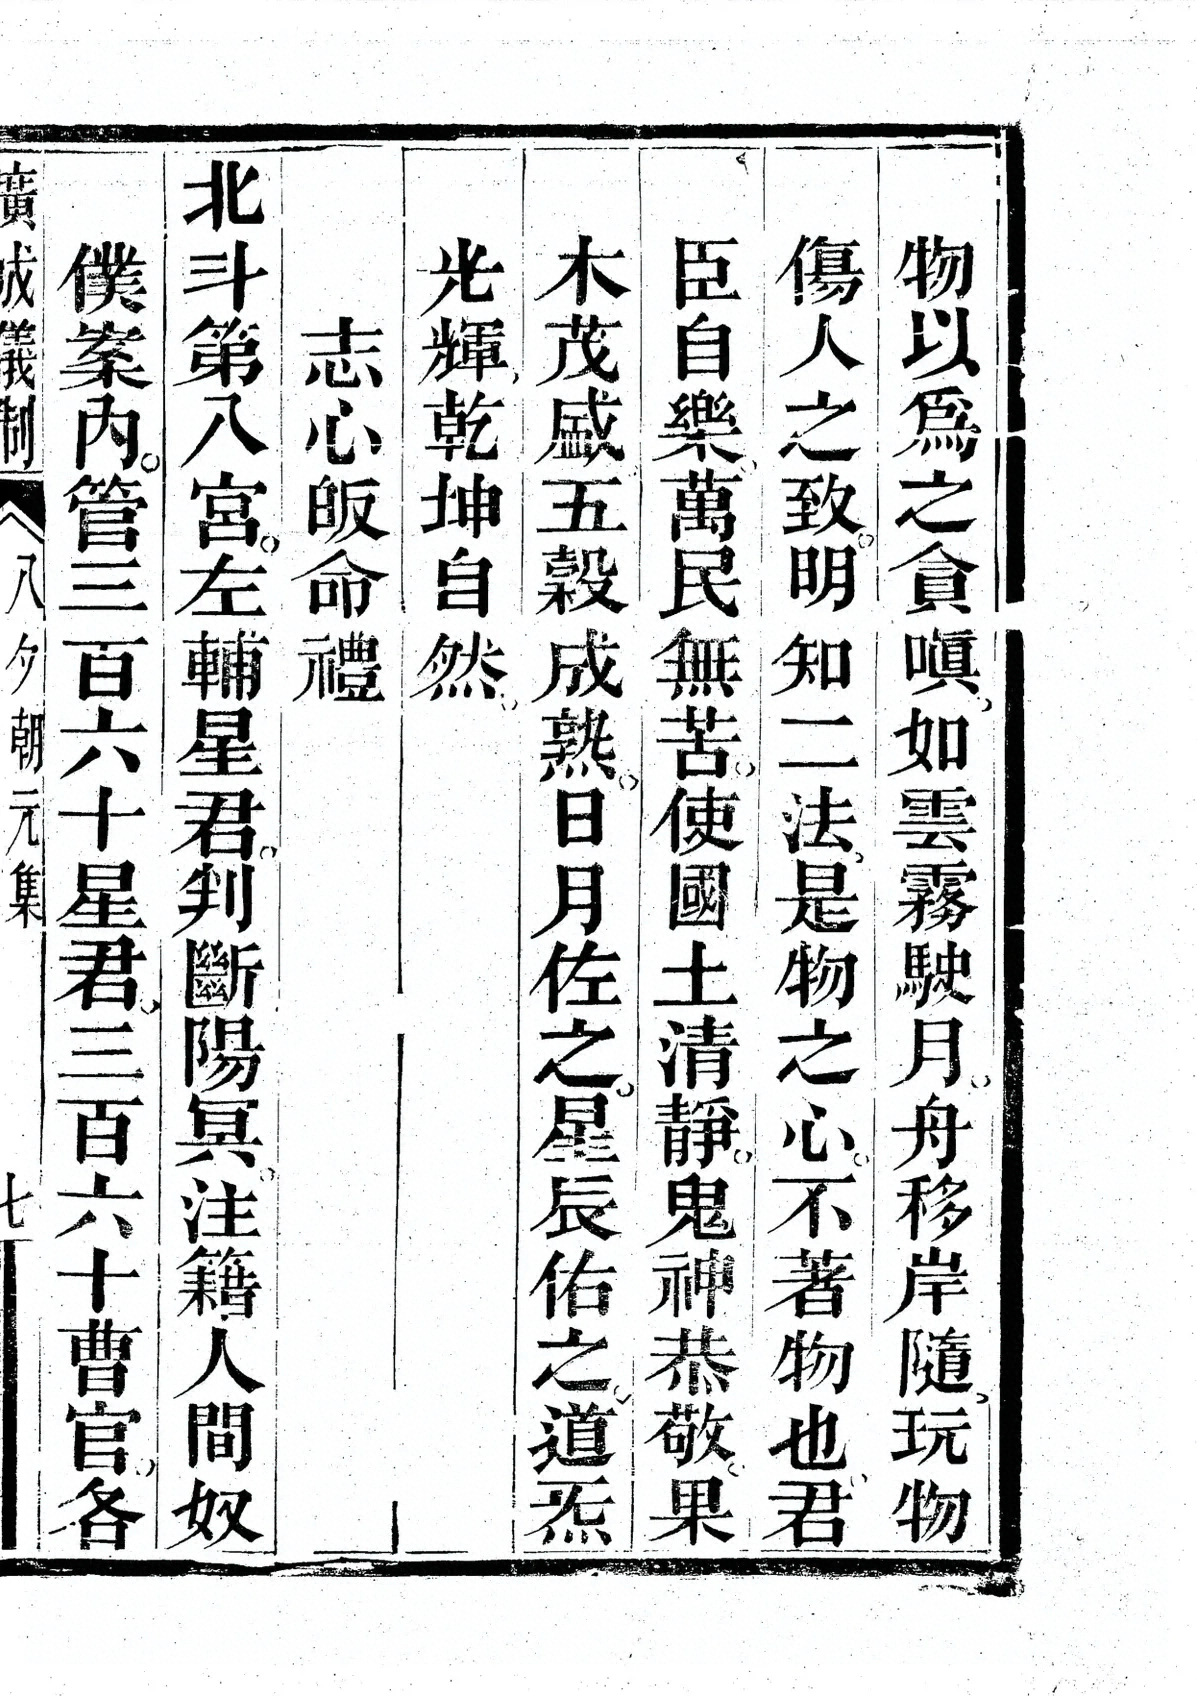 物以為之貪嗔如雲霧駛月舟移岸隨玩物
傷人之致明知二法是物之心不著物也君
臣自樂萬民無苦使國土清靜鬼神恭敬果
木茂盛五穀成熟日月佐之星辰佑之道炁
光輝乾坤自然
志心皈命禮
北斗第八宮左輔星君判斷陽冥注籍人間奴
僕案內管三百六十星君三百六十曹官各
廣成儀制 八夕朝元集 七